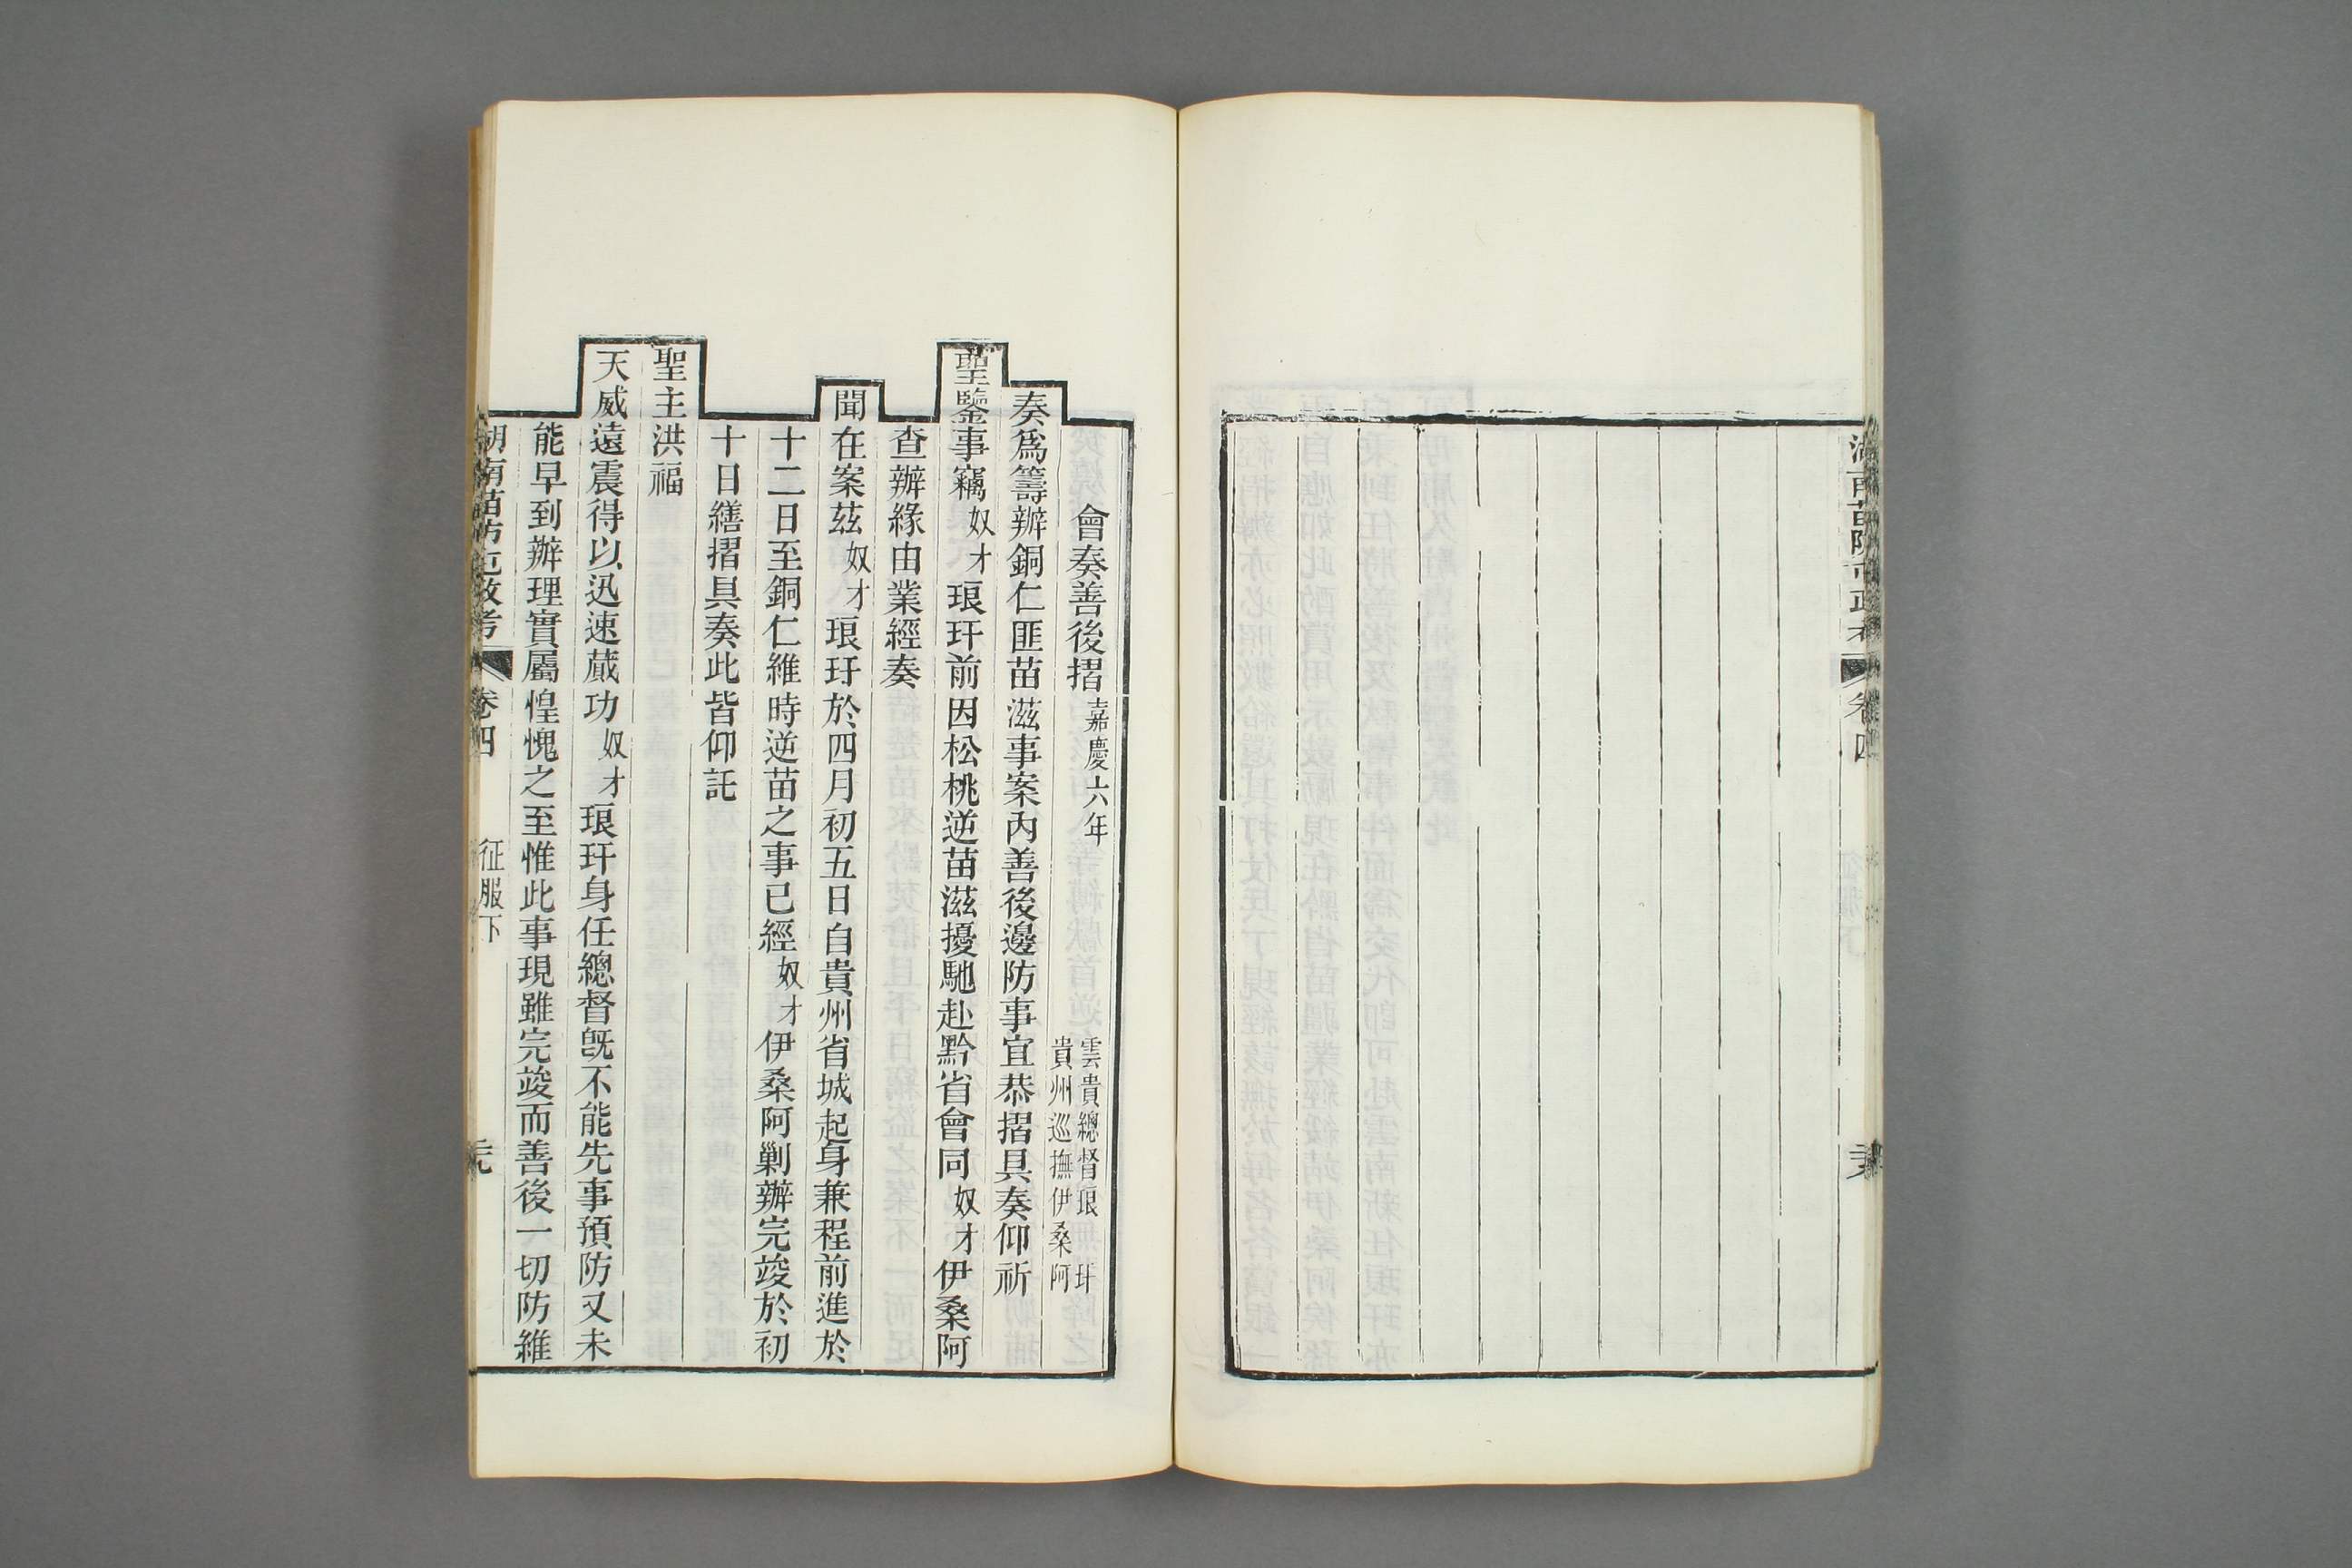 會奏善後摺 嘉慶六年 雲貴總督琅玕 貴州巡撫伊桑阿
奏爲籌辦銅仁匪苗滋事案內善後邊防事宜恭摺具奏仰祈
聖鑒事竊奴才琅玕前因松桃逆苗滋擾馳赴黔省會同奴才伊桑阿
查辦緣由業經奏
聞在案茲奴才琅玕於四月初五日自貴州省城起身兼程前進於
十二日至銅仁維時逆苗之事已經奴才伊桑阿剿辦完竣於初
十日繕摺具奏此皆仰託
聖主洪福
天威遠震得以迅速蕆功奴才琅玕身任總督旣不能先事預防又未
能早到辦理實屬惶愧之至惟此事現雖完竣而善後一切防維
湖南苗防屯政考 卷四 征服下